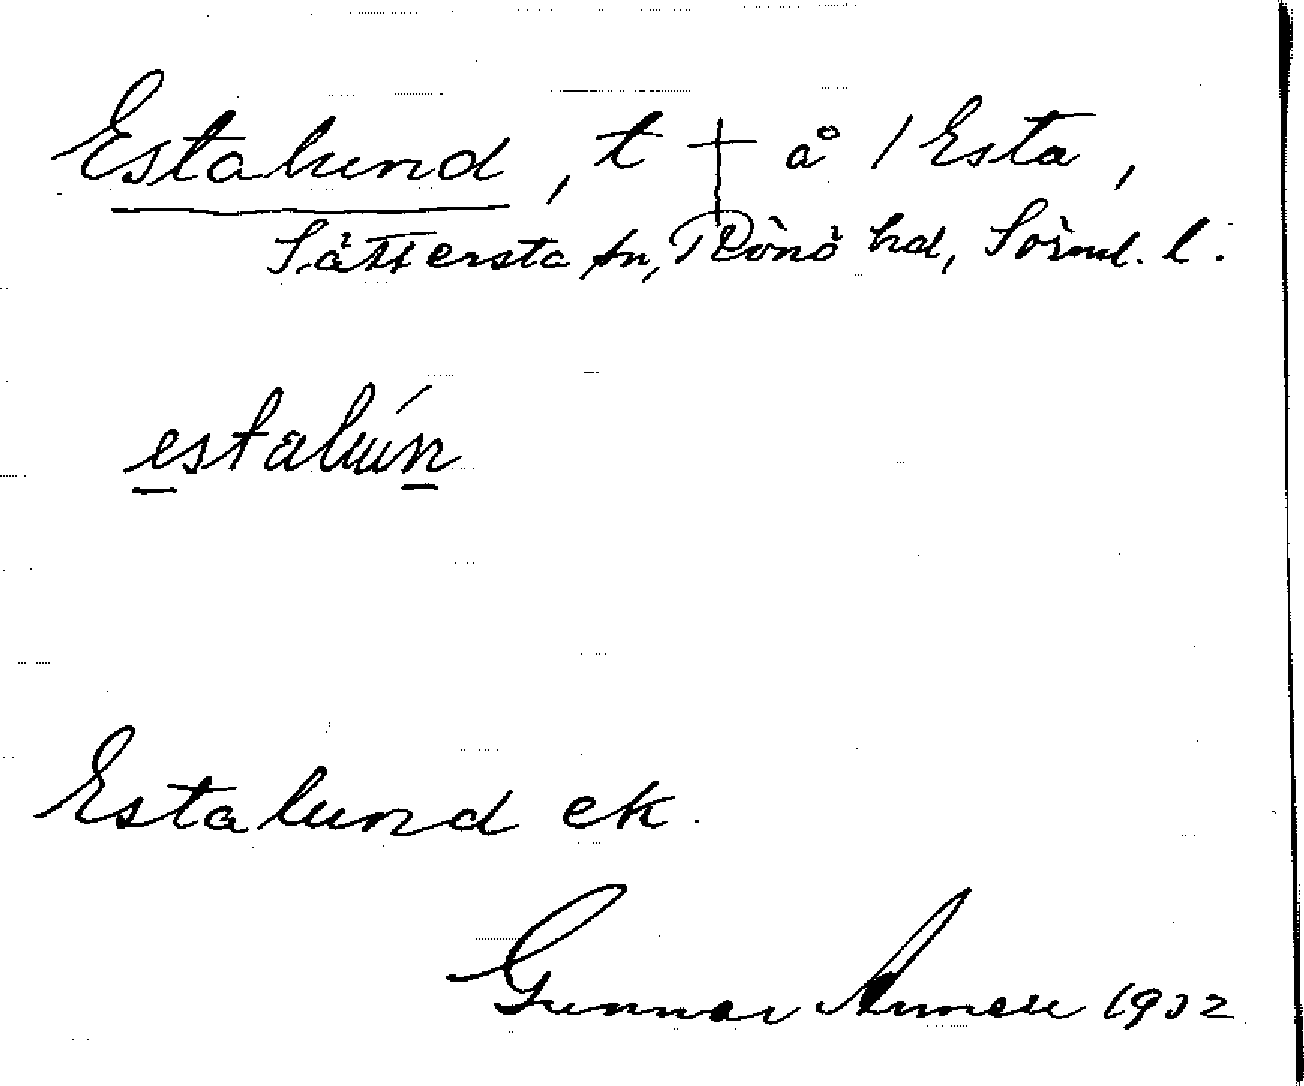 Estalund, t † å 1 Esta,
Sättersta sn, Rönö hd, Södml. l.
estalún
Estalund ek.
Gunnar 1932